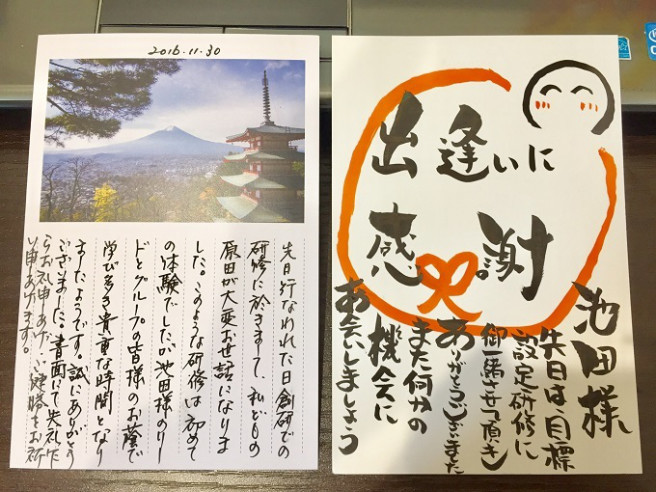 2016.11.30
先日行なわれた日創研での
研修に於きまして、私どもの
原田が大変お世話になりま
した。このような研修は初めて
の体験でしたが池田様のリー
ドとグループの皆様のお蔭で
学び多き貴重な時間となり
ましたようです。誠にありがとう
ございました。書面にて失礼なが
らお礼申しあげ、ご健勝をお祈
り申しあげます。
出逢いに
感謝
池田様
先日は、目標
設定研修に
御一緒させて頂き
ありがとうございました
また何かの
機会に
お会いしましょう